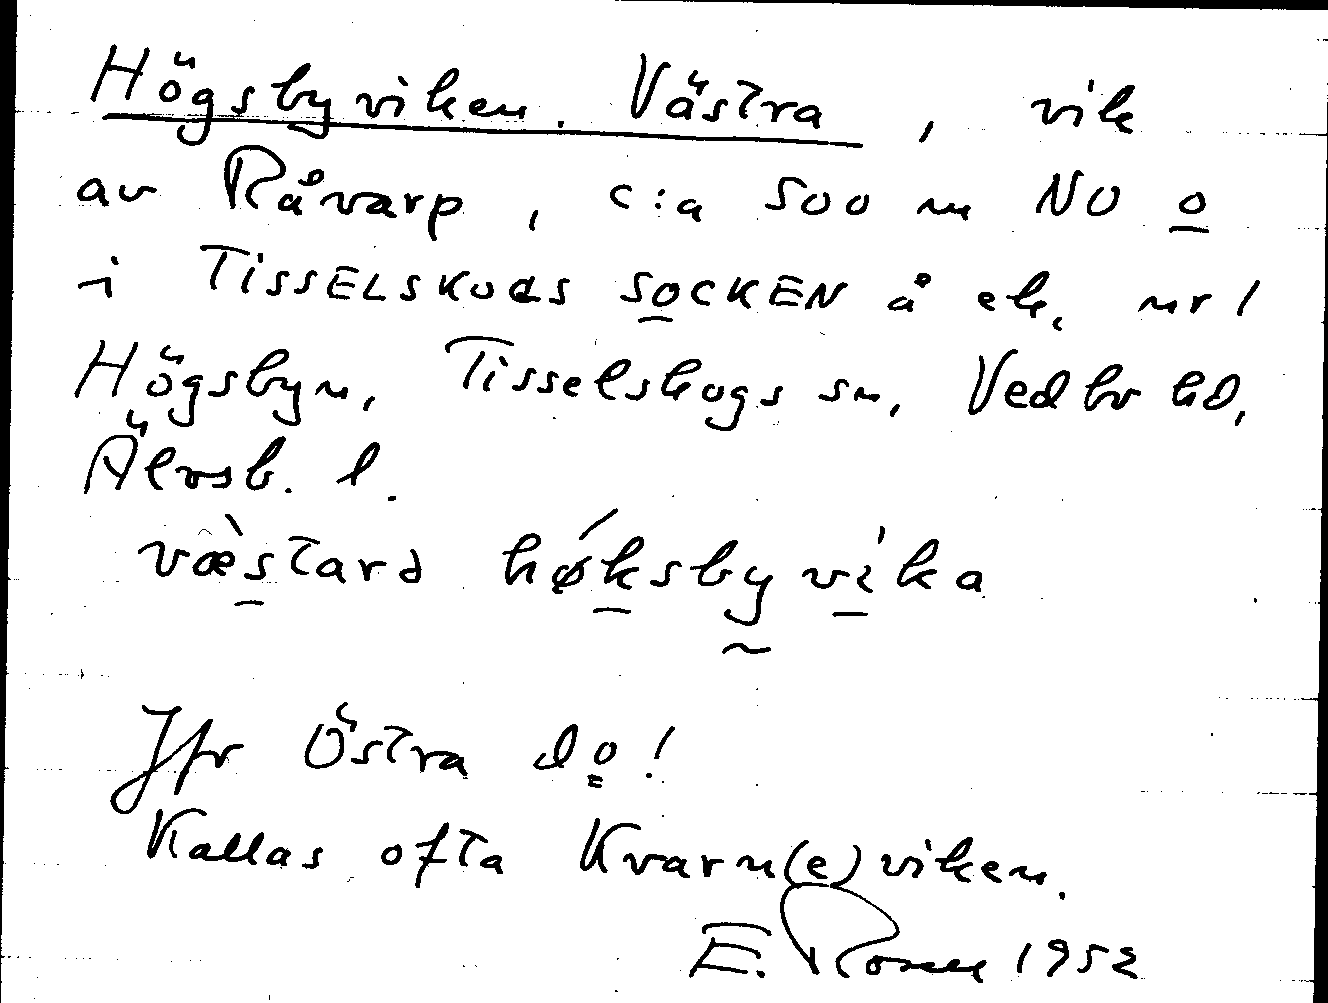 Högsbyviken. Västra, vik
av Råvarp, c:a 500 m NO o
i TISSELSKOGS SOCKEN å ek. nr 1
Högsbyn, Tisselskogs sn, Vedbo hd,
Älvsb. l.
væ̀stard hǿksbyvíka
Jfr Östra do!
Kallas ofta Kvarn(e)viken.
E. 1952